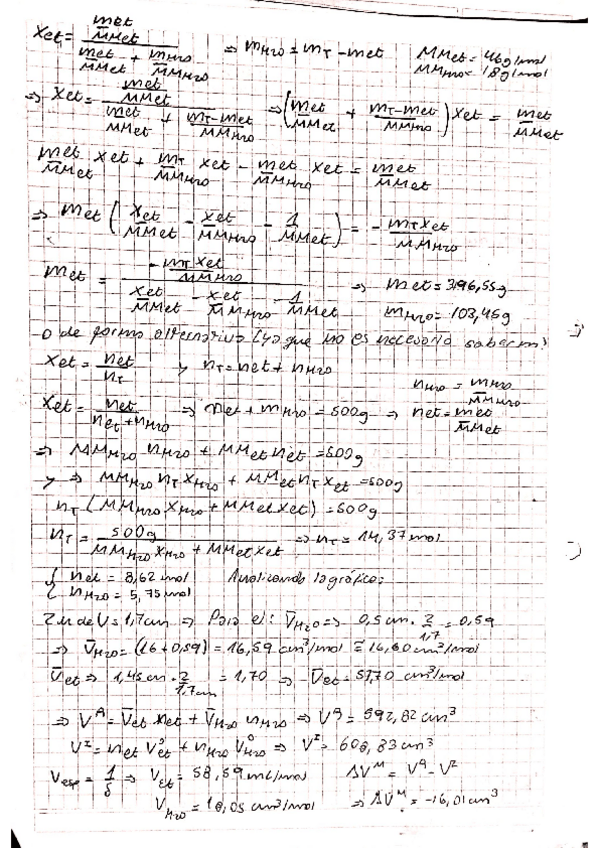 Xet = (met/MMet) / (met/MMet + mH2O/MMH2O) ⇒ mH2O = mT - met MMet = 46g/mol
MMH2O = 18g/mol
⇒ Xet = (met/MMet) / (met/MMet + (mT-met)/MMH2O) ⇒ (met/MMet + (mT-met)/MMH2O) Xet = met/MMet
met/MMet Xet + mT/MMH2O Xet - met/MMH2O Xet = met/MMet
⇒ met (Xet/MMet - Xet/MMH2O - 1/MMet) = - mT Xet/MMH2O
met = (- mT Xet/MMH2O) / (Xet/MMet - Xet/MMH2O - 1/MMet) ⇒ met = 396,55g
mH2O = 103,45g
O de forma alternativa (ya que no es necesario saber m)
Xet = net/nT y nT = net + nH2O
nH2O = mH2O/MMH2O
Xet = net/(net + nH2O) ⇒ met + mH2O = 500g ⇒ net = met/MMet
⇒ MMH2O nH2O + MMet net = 500g
y ⇒ MMH2O nT XH2O + MMet nT Xet = 500g
nT (MMH2O XH2O + MMet Xet) = 500g
nT = 500g / (MMH2O XH2O + MMet Xet) ⇒ nT = 14,37mol
{ net = 8,62 mol Analizando la gráfica:
nH2O = 5,75mol
2u de V = 1,7cm ⇒ Para el: V̄H2O ⇒ 0,5cm. 2/1,7 = 0,59
⇒ V̄H2O = (16+0,59) = 16,59 cm³/mol ≅ 16,60 cm³/mol
V̄et ⇒ 1,45cm . 2/1,7cm = 1,70 ⇒ V̄et = 57,70 cm³/mol
⇒ Vᴬ = V̄et net + V̄H2O nH2O ⇒ Vᴬ = 592,82 cm³
Vᴵ = net V°et + nH2O V°H2O ⇒ Vᴵ = 608,83 cm³
Vesp = 1/δ ⇒ Vet = 58,59 mL/mol ΔVᴹ = Vᴬ - Vᴵ
VH2O = 18,05 cm³/mol ⇒ ΔVᴹ = -16,01 cm³